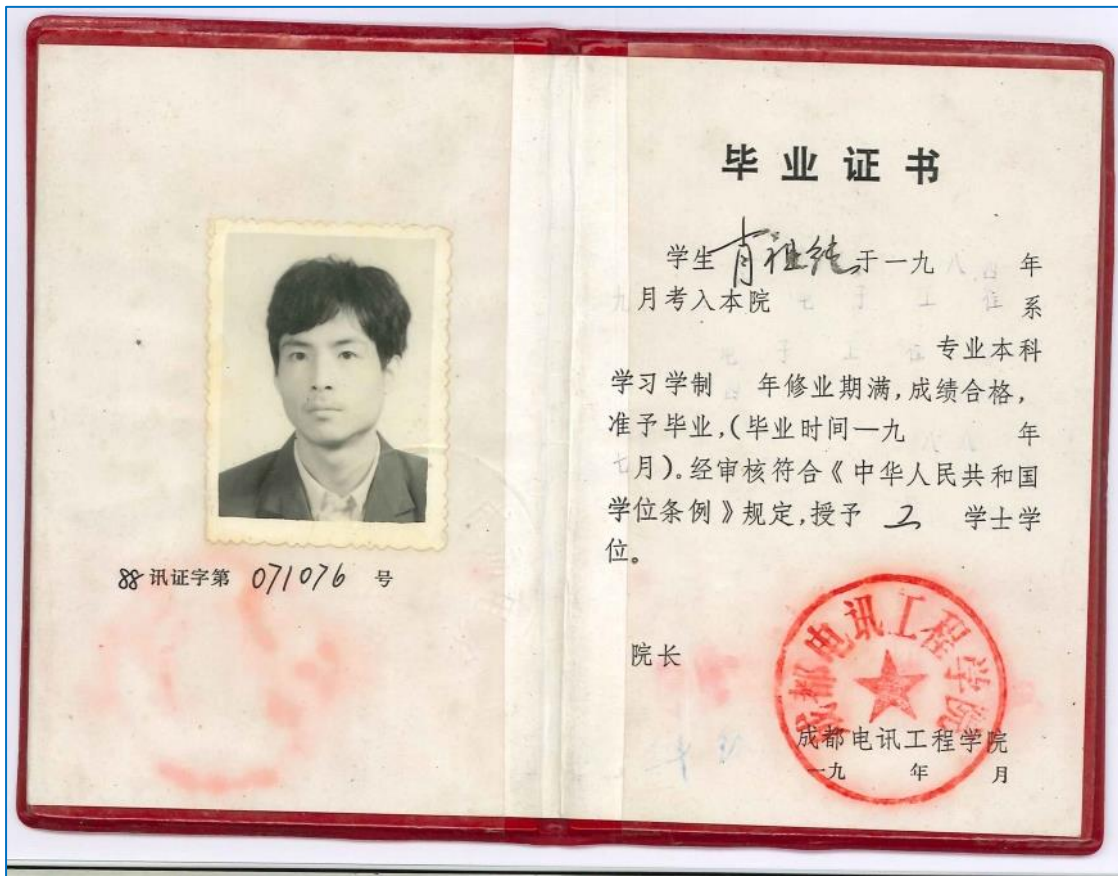 88讯证字第 071076 号
毕业证书
学生 肖祖 于一九八四年
九月考入本院 电子工程 系
电子工程 专业本科
学习学制 四 年修业期满,成绩合格,
准予毕业,(毕业时间一九八八年
七月)。经审核符合《中华人民共和国
学位条例》规定,授予 工 学士学
位。
院长
成都电讯工程学院
成都电讯工程学院
一九 年 月